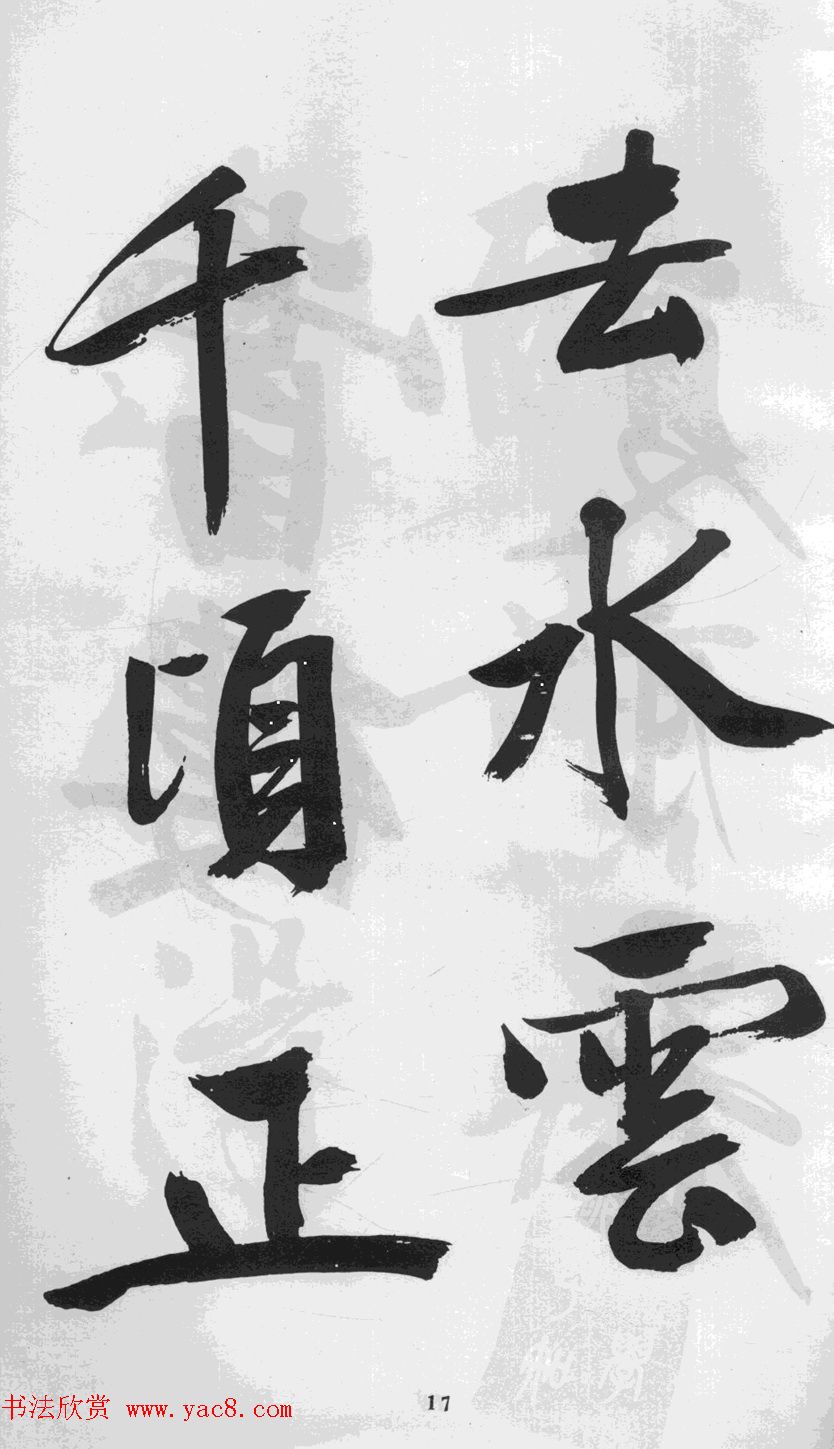 去水雲
千頃正
17
书法欣赏 www.yac8.com